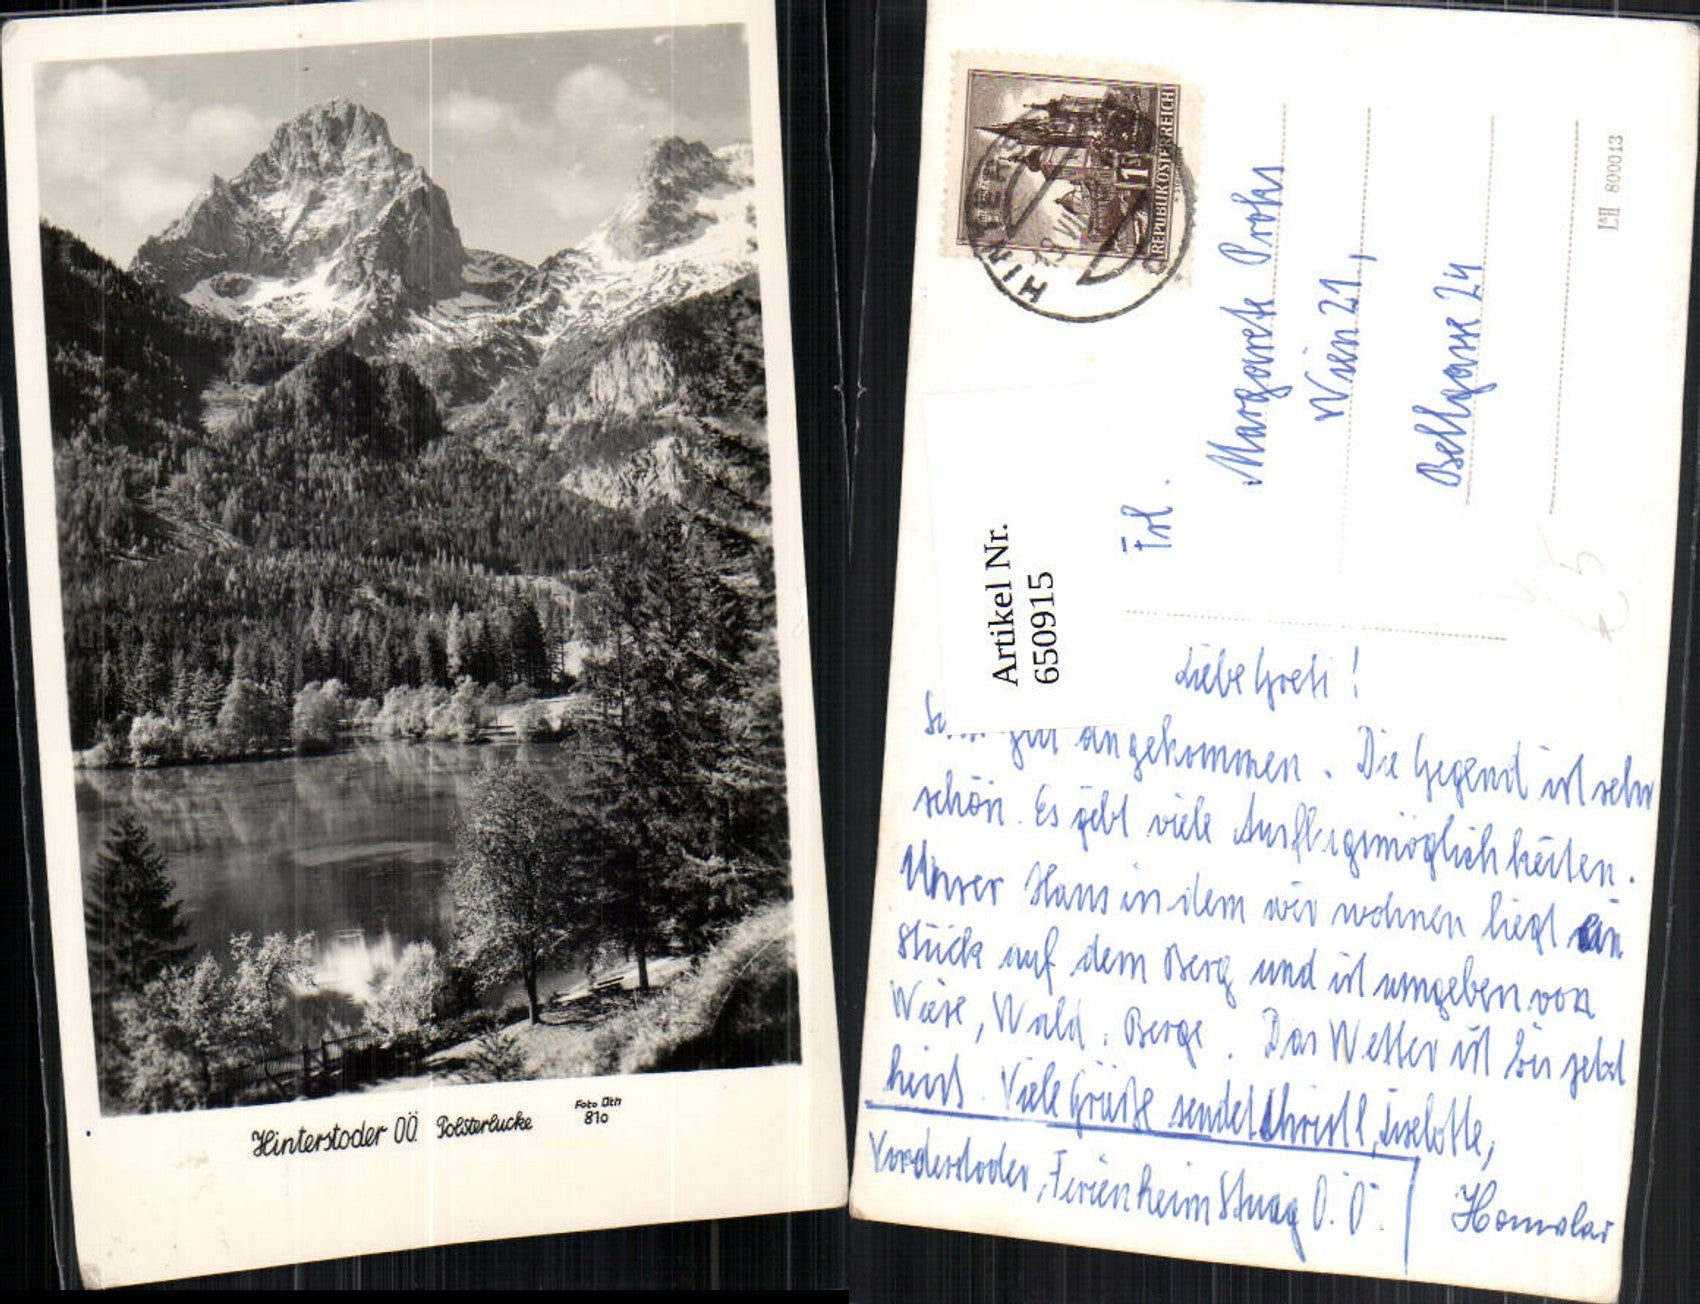 Hinterstoder OÖ. Polsterlucke
Foto Oth
810
REPUBLIK ÖSTERREICH
HINTERSTODER
Artikel Nr.
6509915
Frl.
Margarete
Wien 21,
Bellgasse 24
800013
€5
Liebe Greti!
gut angekommen. Die Gegend ist sehr
schön. Es gibt viele Ausflugsmöglichkeiten.
Unser Haus in dem wir wohnen liegt ein
Stück auf dem Berg und ist umgeben von
Wiese, Wald, Berge. Das Wetter ist bis jetzt
heiß. Viele Grüße sendet Christl, Liselotte,
Vorderstoder, Ferienheim O.Ö.